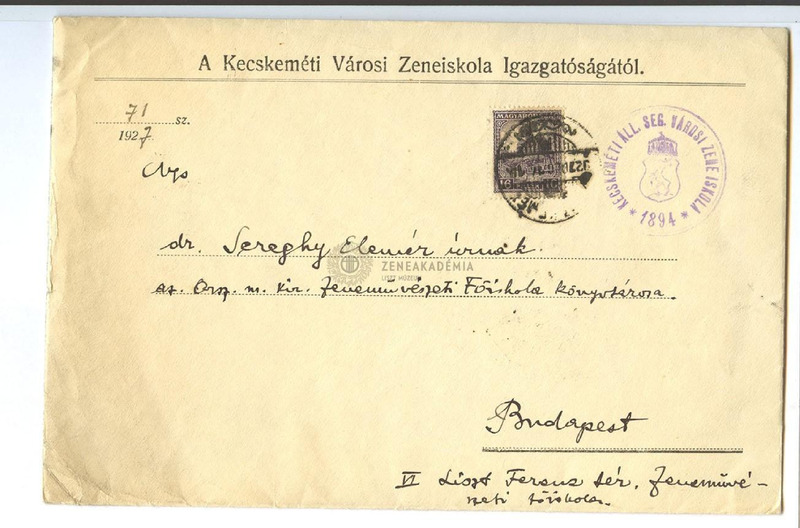 A Kecskeméti Városi Zeneiskola Igazgatóságától.
71 sz.
1927
KECSKEMÉTI ÁLL. SEG. VÁROSI ZENEISKOLA
* 1894 *
MAGYAR
Ngs
dr. Sereghy Elemér úrnak.
ZENEAKADÉMIA
LISZT MÚZEUM
az Orsz. m. kir. Zeneművészeti Főiskola könyvtárosa.
Budapest
VI Liszt Ferenc tér, Zeneművé-
szeti főiskola.